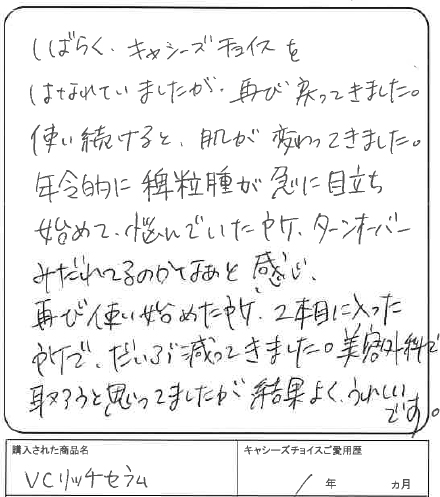 しばらく、キャシーズチョイスを
はなれていましたが、再び戻ってきました。
使い続けると、肌が変わってきました。
年令的に稗粒腫が急に目立ち
始めて、悩んでいた中で、ターンオーバー
みだれてるのかなあと感じ、
再び使い始めた中で、2本目に入った
中で、だいぶ減ってきました。美容外科で
取ろうと思ってましたが結果よく、うれしい
です。
購入された商品名
VCリッチセラム
キャシーズチョイスご愛用歴
1年 ヵ月